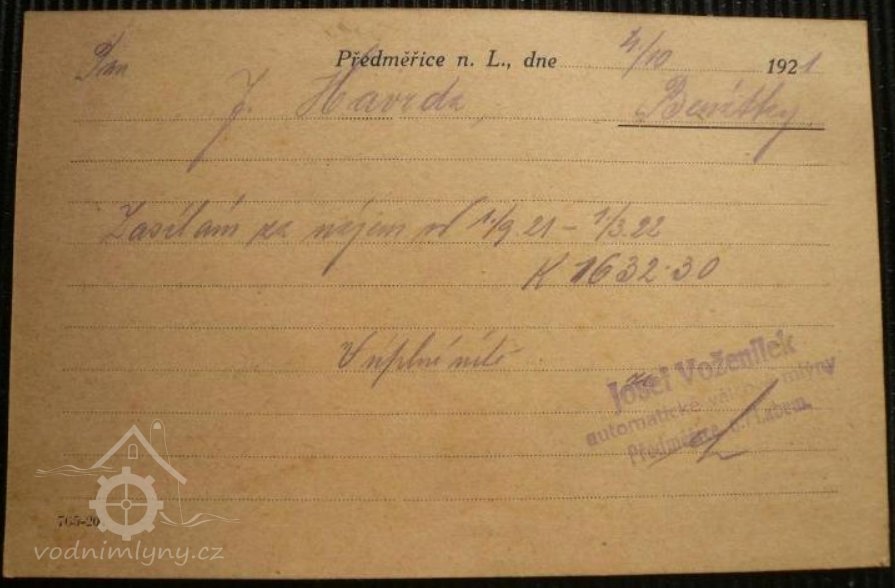 Předměřice n. L., dne 4/10 1921
Pan
J. Havrda,
Zasílám za nájem od 1./9 21 – 1/3.22
K 1632·30
V úplné úctě
Josef Voženílek
automatické válcové mlýny
Předměřice n./Labem.
765-20
vodnimlyny.cz